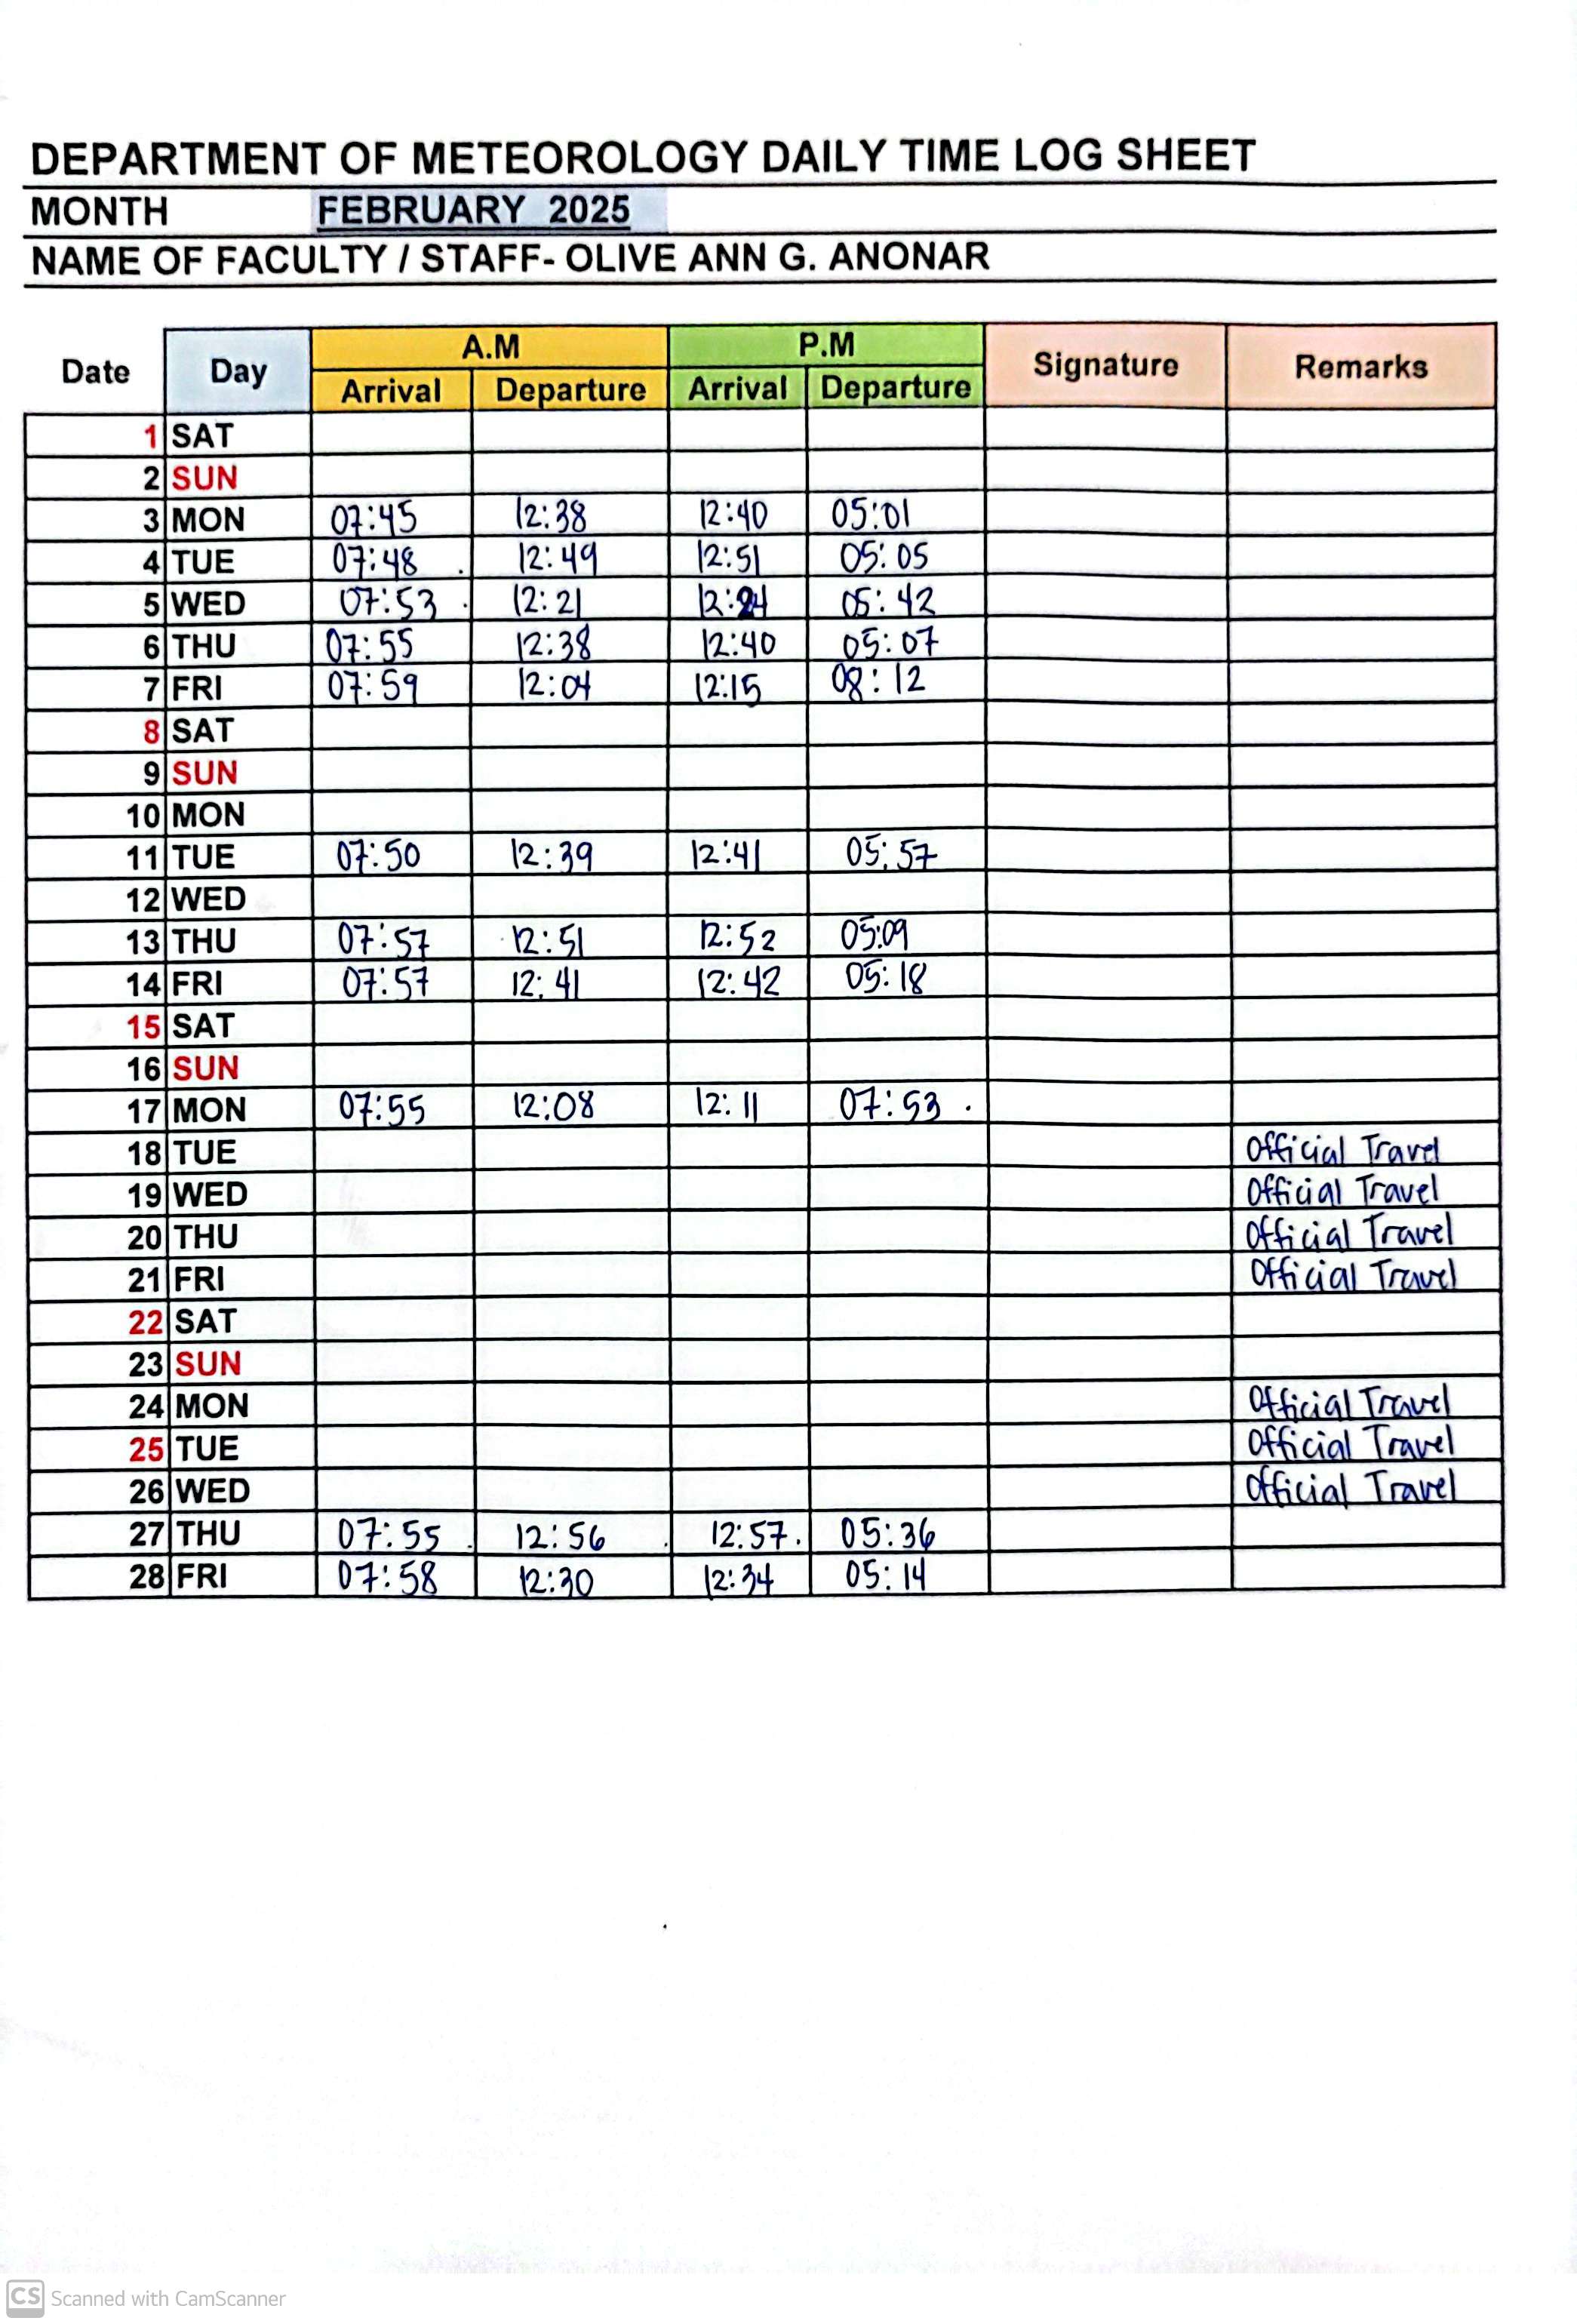 DEPARTMENT OF METEOROLOGY DAILY TIME LOG SHEET
MONTH FEBRUARY 2025
NAME OF FACULTY / STAFF- OLIVE ANN G. ANONAR
Date Day A.M P.M Signature Remarks
Arrival Departure Arrival Departure
1 SAT
2 SUN
3 MON 07:45 12:38 12:40 05:01
4 TUE 07:48 12:49 12:51 05:05
5 WED 07:53 12:21 12:24 05:42
6 THU 07:55 12:38 12:40 05:07
7 FRI 07:59 12:04 12:15 08:12
8 SAT
9 SUN
10 MON
11 TUE 07:50 12:39 12:41 05:57
12 WED
13 THU 07:57 12:51 12:52 05:09
14 FRI 07:57 12:41 12:42 05:18
15 SAT
16 SUN
17 MON 07:55 12:08 12:11 07:53
18 TUE Official Travel
19 WED Official Travel
20 THU Official Travel
21 FRI Official Travel
22 SAT
23 SUN
24 MON Official Travel
25 TUE Official Travel
26 WED Official Travel
27 THU 07:55 12:56 12:57 05:36
28 FRI 07:58 12:30 12:34 05:14
CS Scanned with CamScanner